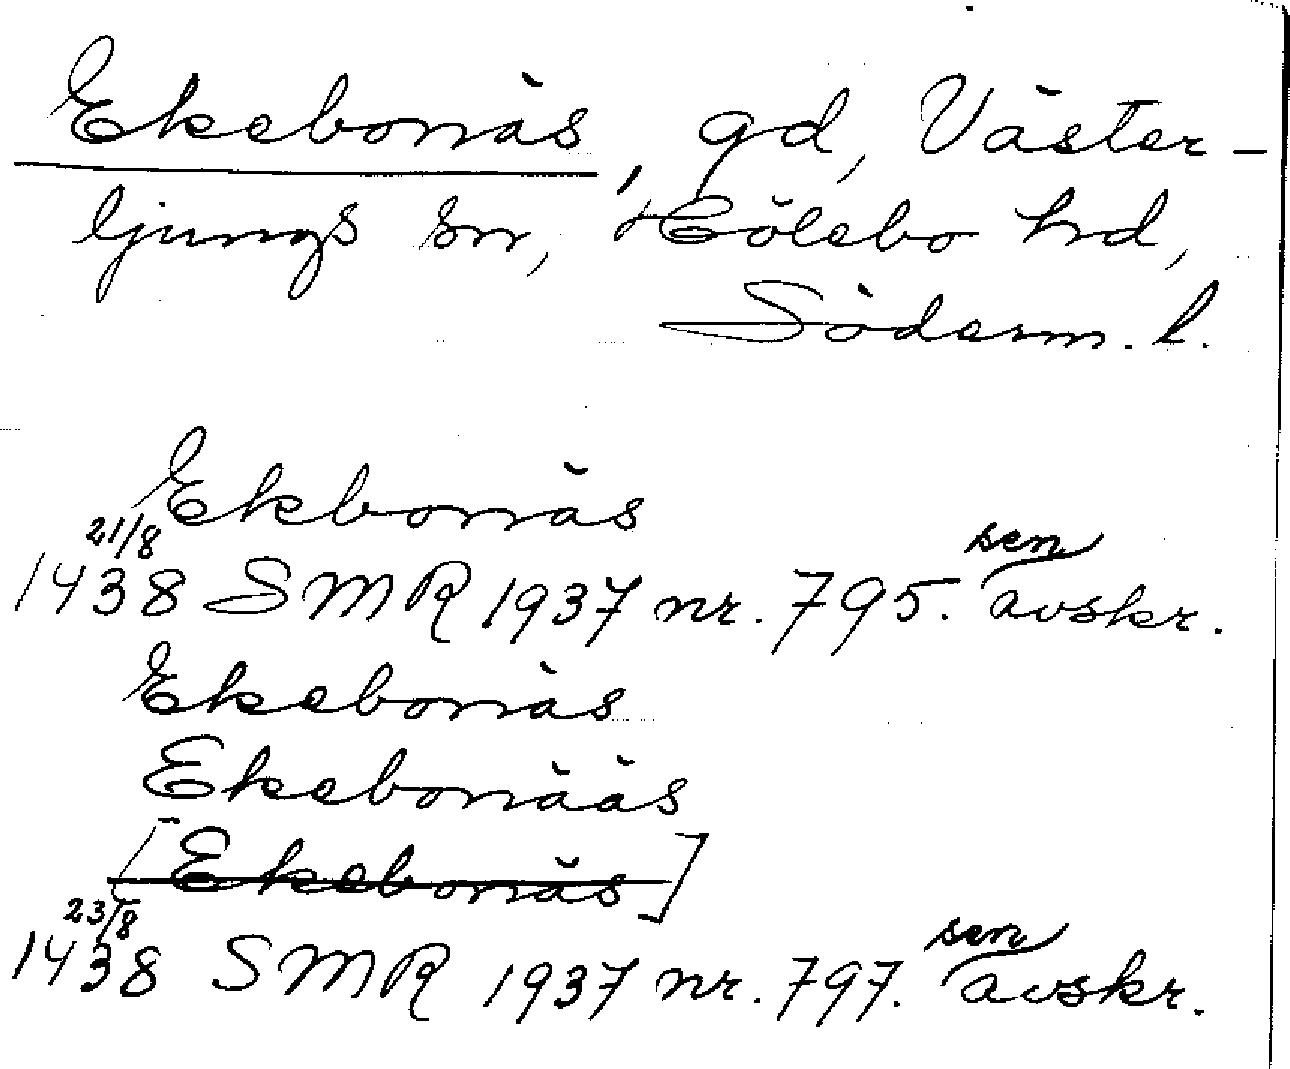 Ekebonäs, gd, Väster-
ljungs sn, Hölebo hd,
Söderm. l.
Ekbonäs
21/8
1438 SMR 1937 nr. 795. sen avskr.
Ekebonäs
Ekebonääs
[Ekebonäs]
23/8
1438 SMR 1937 nr. 797. sen avskr.